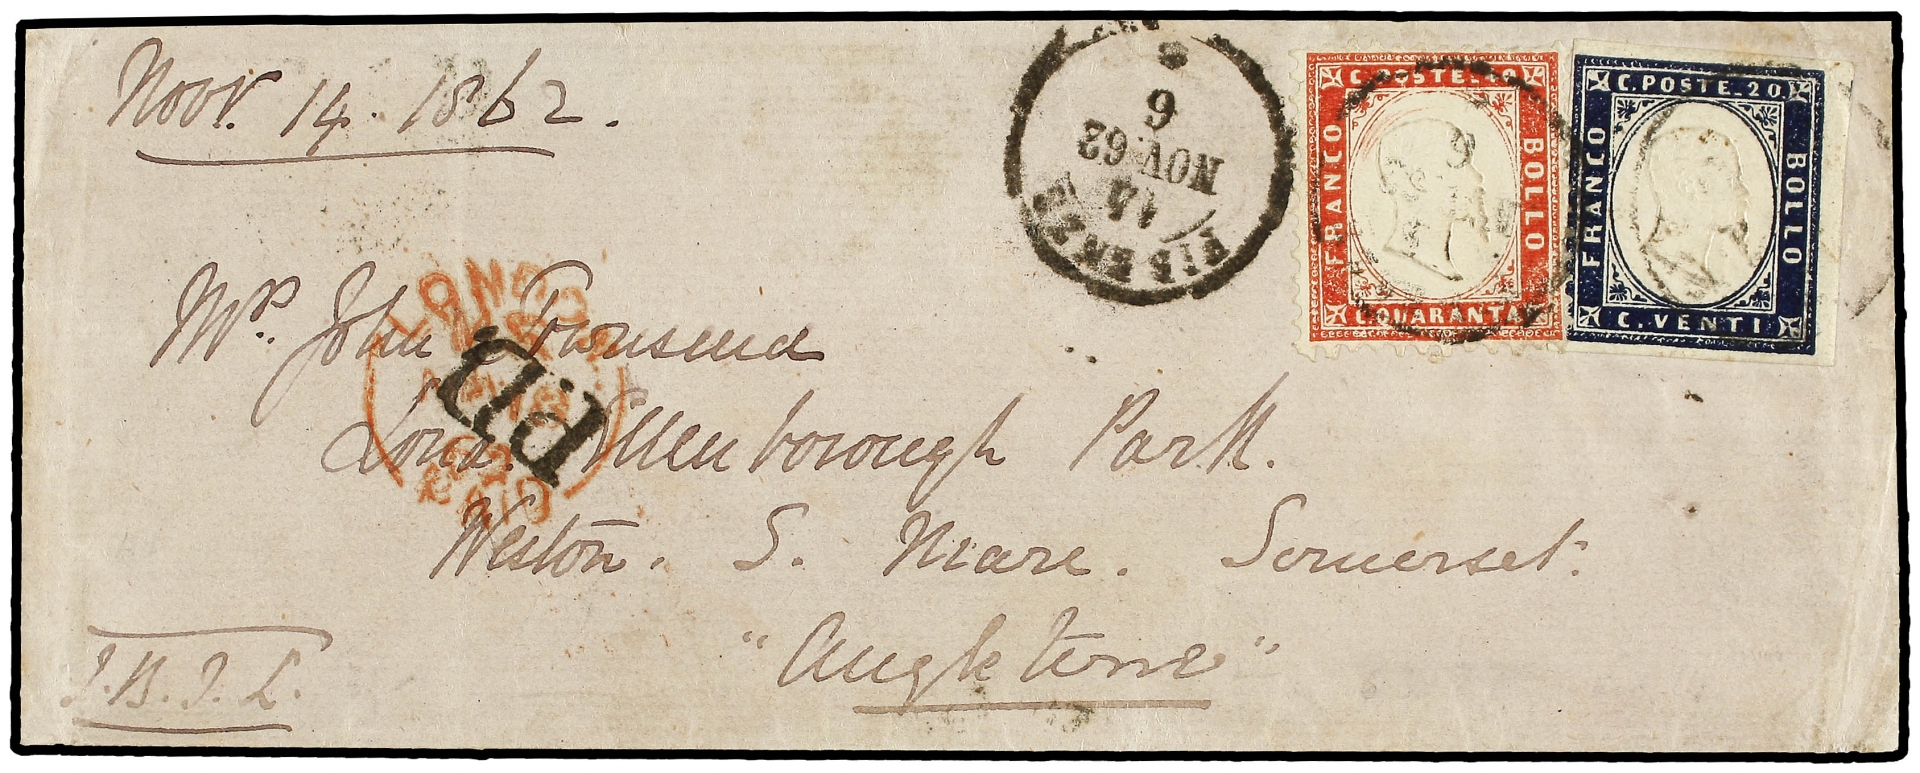 Novr. 14. 1862.
FIRENZE
14
NOV. 62
6
C. POSTE. 40
FRANCO
BOLLO
C. QUARANTA
C. POSTE. 20.
FRANCO
BOLLO
C. VENTI
LONDON
PAID
P.D.
Mr. John Townsend
Ellenborough Park.
Weston. S. Mare. Somerset.
"Angleterre"